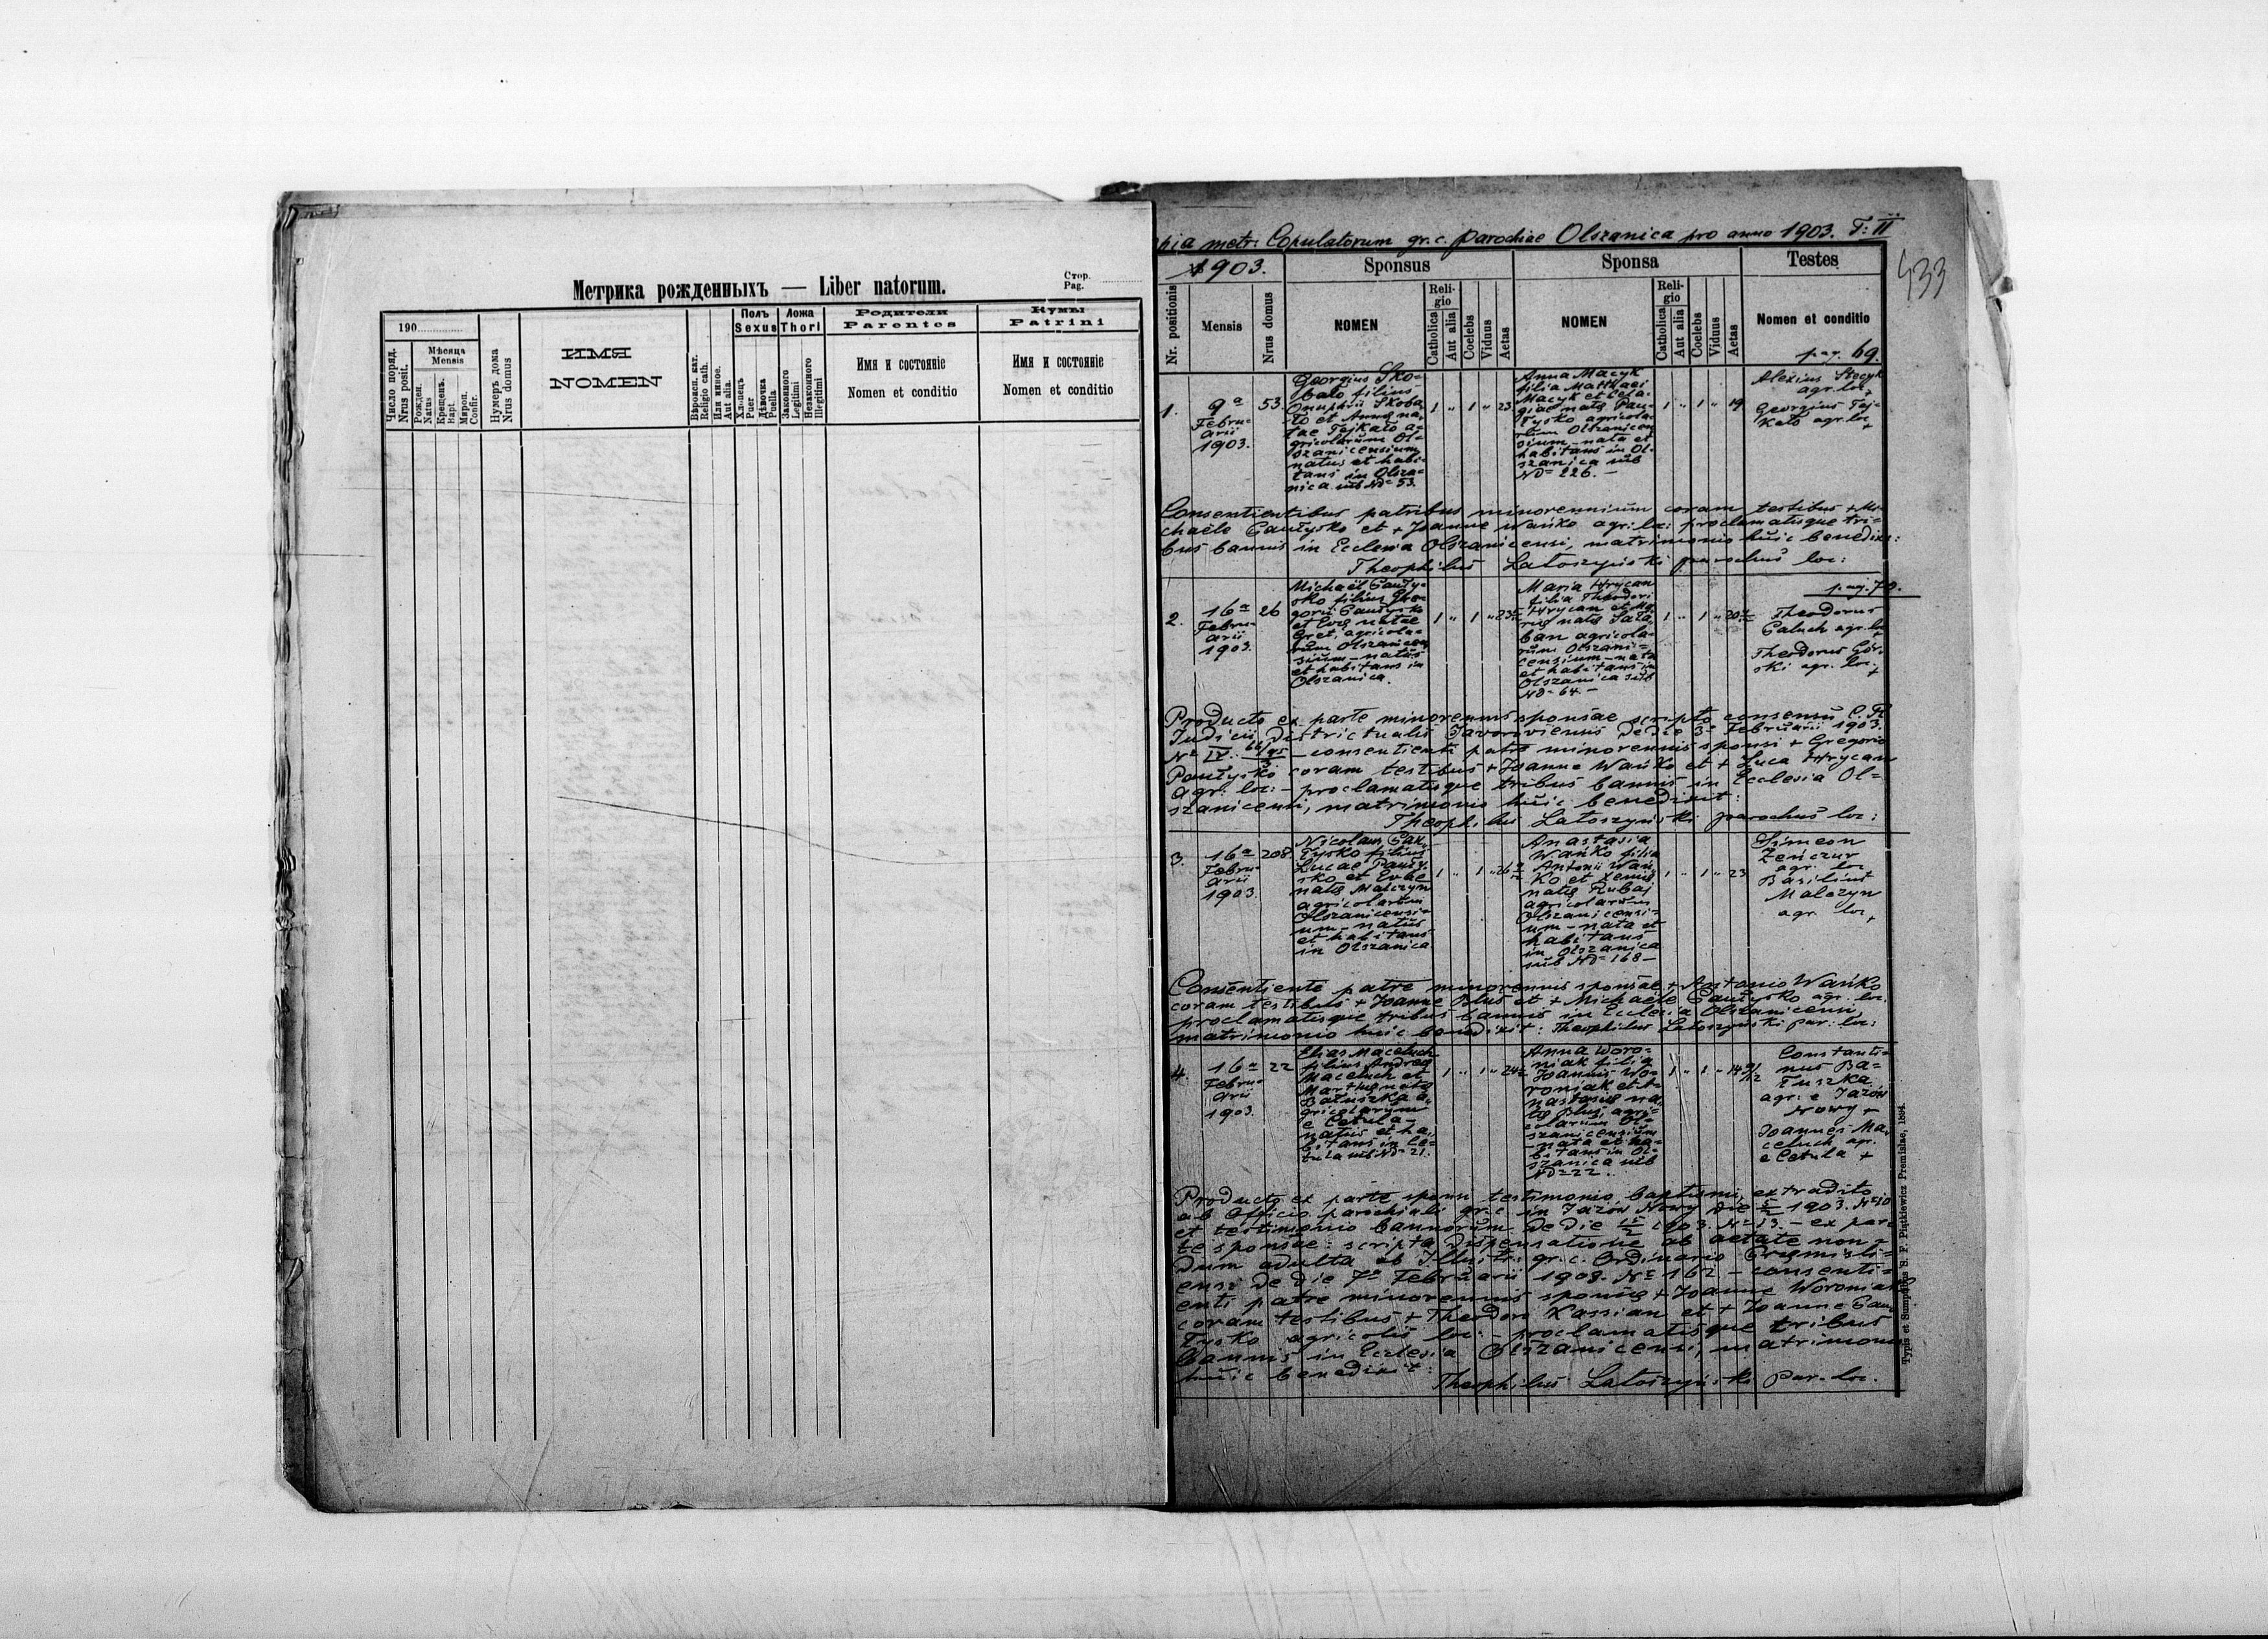 Метрика рожденныхъ — Liber natorum.
Стор.
Pag.
190
Число поряд.
Nrus posit.
Мѣсяца
Mensis
Рожден.
Natus
Крещенъ.
Bapt.
Миропом.
Confir.
Нумеръ дома
Nrus domus
ИМЯ
NOMEN
Вѣроисп. кат.
Religio cath.
Или иное.
Aut alia.
Полъ
Sexus
Хлопецъ
Puer
Дѣвочка
Puella
Ложа
Thori
Законного
Legitimi
Незаконного
Illegitimi
Родители
Parentes
Имя и состояніе
Nomen et conditio
Кумы
Patrini
Имя и состояніе
Nomen et conditio
metr: Copulatorum gr. c. Parochiae Olszanica pro anno 1903. T: II
533
1903.
Sponsus
Sponsa
Testes
Nr. positionis
Mensis
Nrus domus
NOMEN
Religio
Catholica
Aut alia
Coelebs
Viduus
Aetas
NOMEN
Religio
Catholica
Aut alia
Coelebs
Viduus
Aetas
Nomen et conditio
pag. 69.
1.
9a
Februarii
1903.
53.
Georgius Sko-
bato filius
Onuphrii Skoba
to et Annae na-
tae Fejkato a-
gricolarum Ol-
szanicensium
natus et habi-
tans in Olsza-
nica sub No 53.
1 " 1 " 23
Anna Macyk
filia Matthaei
Macyk et Pela-
giae natae Pau-
tysko agricola-
rum Olszanicen
sium - nata et
habitans in Ol-
szanica sub
No 226. -
1 " 1 " 19
Alexius Stecyk
agr. loc. +
Georgius Fej-
kato agr. loc. +
Consentientibus patribus minorennium coram testibus + Mi-
chaële Pautysko et + Joanne Wańko agr: loc: proclamatisque tri-
bus bannis in Ecclesia Olszanicensi, matrimonio huic benedixit:
Theophilus Latoszyński parochus loc:
pag. 70.
2.
16a
Februarii
1903.
26
Michaël Pauty-
sko filius Gre-
gorii Pautysko
et Evae natae
Gret, agricola-
rum Olszanicen
sium - natus
et habitans in
Olszanica.
1 " 1 "
Maria Hrycan
filia Theodori
Hrycan et Ma-
riae natae Sata
ban agricola-
rum Olszani-
censium - nata
et habitans in
Olszanica sub
No 64. -
1 " 1 "
Theodorus
Paluch agr. loc.
Theodorus Gór-
ski agr. loc. +
Producto ex parte minorennis sponsae scripto consensu C. R.
Judicii districtualis Javoroviensis de dto 3a Februarii 1903.
No IV. - consentienti patre minorennis sponsi + Gregorio
Pautysko coram testibus + Joanne Wańko et + Luca Hrycan
agr: loc: - proclamatisque tribus bannis in Ecclesia Ol-
szanicensi, matrimonio huic benedixit:
Theophilus Latoszyński parochus loc:
3.
16a
Februarii
1903.
208
Nicolaus Pau-
tysko filius
Lucae Pauty-
sko et Evae
natae Malczyn
agricolarum
Olszanicensi-
um - natus
et habitans
in Olszanica
1 " 1 "
Anastasia
Wańko filia
Antonii Wań-
ko et Xeniae
natae Rubaj
agricolarum
Olszanicensi-
um - nata et
habitans
in Olszanica
sub No 168 -
1 " 1 " 23
Simeon
Zenczur
agr. loc
Basilius
Malczyn
agr. loc. +
Consentiente patre minorennis sponsae + Antonio Wańko
coram testibus + Joanne Plus et + Michaële Pautysko agr. loc.
proclamatisque tribus bannis in Ecclesia Olszanicensi,
matrimonio huic benedixit: Theophilus Latoszyński par: loc:
4.
16a
Februarii
1903.
22
Elias Maceluch
filius Andreae
Maceluch et
Marthae natae
Batuszka a-
gricolarum
e Cetula -
natus et ha-
bitans in Ce-
tula sub No 21.
1 " 1 "
Anna Woro-
niak filia
Joannis Wo-
roniak et A-
nastasiae na-
tae Plus, agri-
colarum Ol-
szanicensium
- nata et ha-
bitans in Ol-
szanica sub
No 22.
1 " 1 "
Constanti-
nus Ba-
tuszka
agr: e Jazów
Nowy +
Joannes Ma-
celuch agr.
e Cetula +
Producto ex parte sponsi testimonio baptismi, extradito
ab Officio parochiali gr. c. in Jazów Nowy die 1903. No 10
et testimonio bannorum de die 1903. No 13. - ex par-
te sponsae: scripta dispensatione ab aetate non-
dum adulta ab Illustr: gr. c. Ordinario Premisli-
ensi de die 7a Februarii 1903. No 162 - consenti-
enti patre minorennis sponsae + Joanne Woroniak
coram testibus + Theodoro Kassian et + Joanne Pau-
tysko agricolis loc: - proclamatisque tribus
bannis in Ecclesia Olszanicensi, matrimonio
huic benedixit:
Theophilus Latoszyński Par. loc.
Typis et Sumptibus S. F. Piątkiewicz Premisliae, 1894.